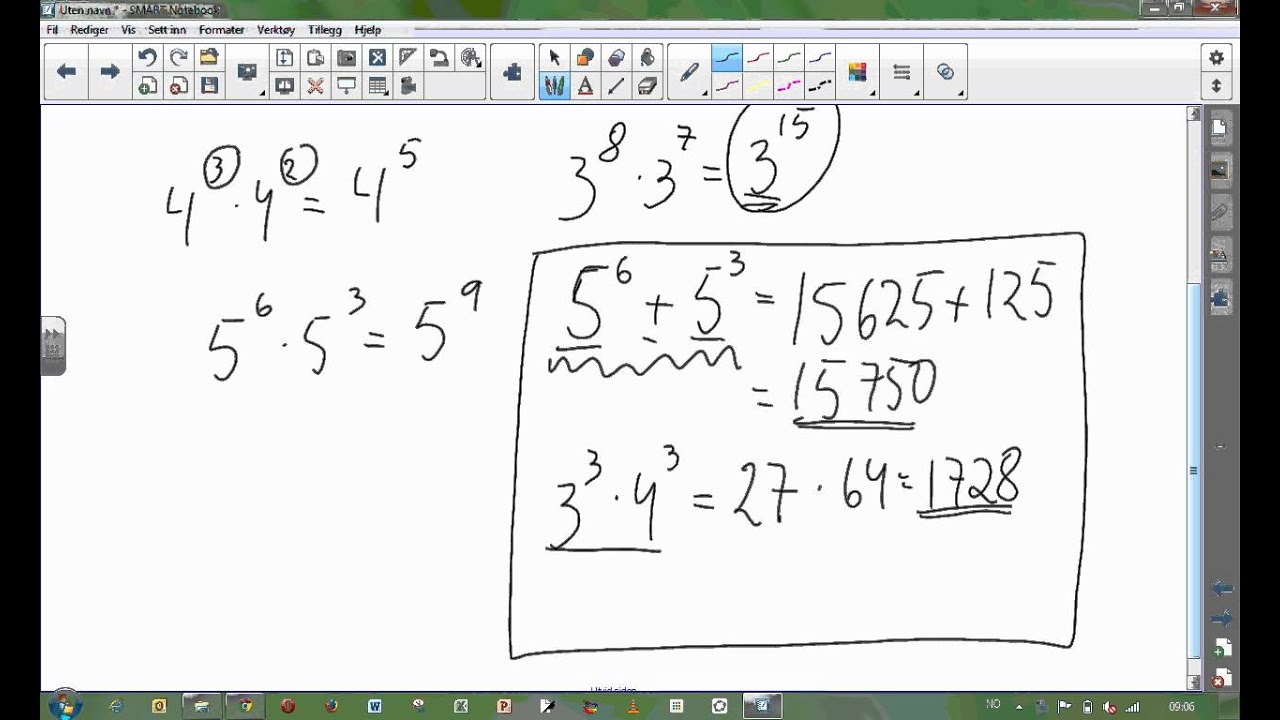 Uten navn * - SMART Notebook
Fil Rediger Vis Sett inn Formater Verktøy Tillegg Hjelp
4³ · 4² = 4⁵
3⁸ · 3⁷ = 3¹⁵
5⁶ · 5³ = 5⁹
5⁶ + 5³ = 15625 + 125
= 15750
3³ · 4³ = 27 · 64 = 1728
Utvid siden
NO 09:06